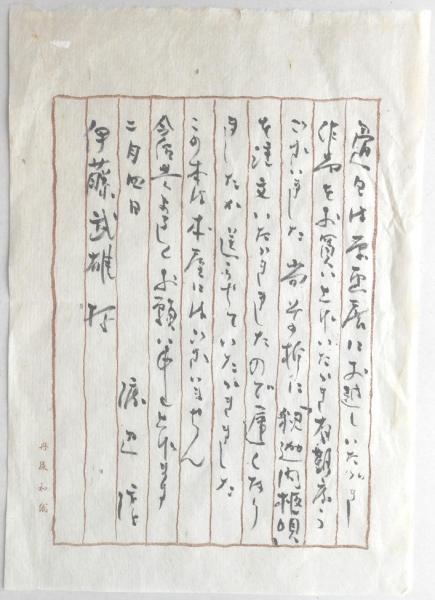 先日は原画展にお越しいただき
作品をお買い上いただき有難う
ございました 尚その折に「釈迦内柩唄」
を注文いただきましたので遅くなり
ましたが送らせていただきました
この本は本屋にはございません
今后共よろしくお願い申し上げます
二月四日 渡辺
伊藤武雄 様
丹後和紙